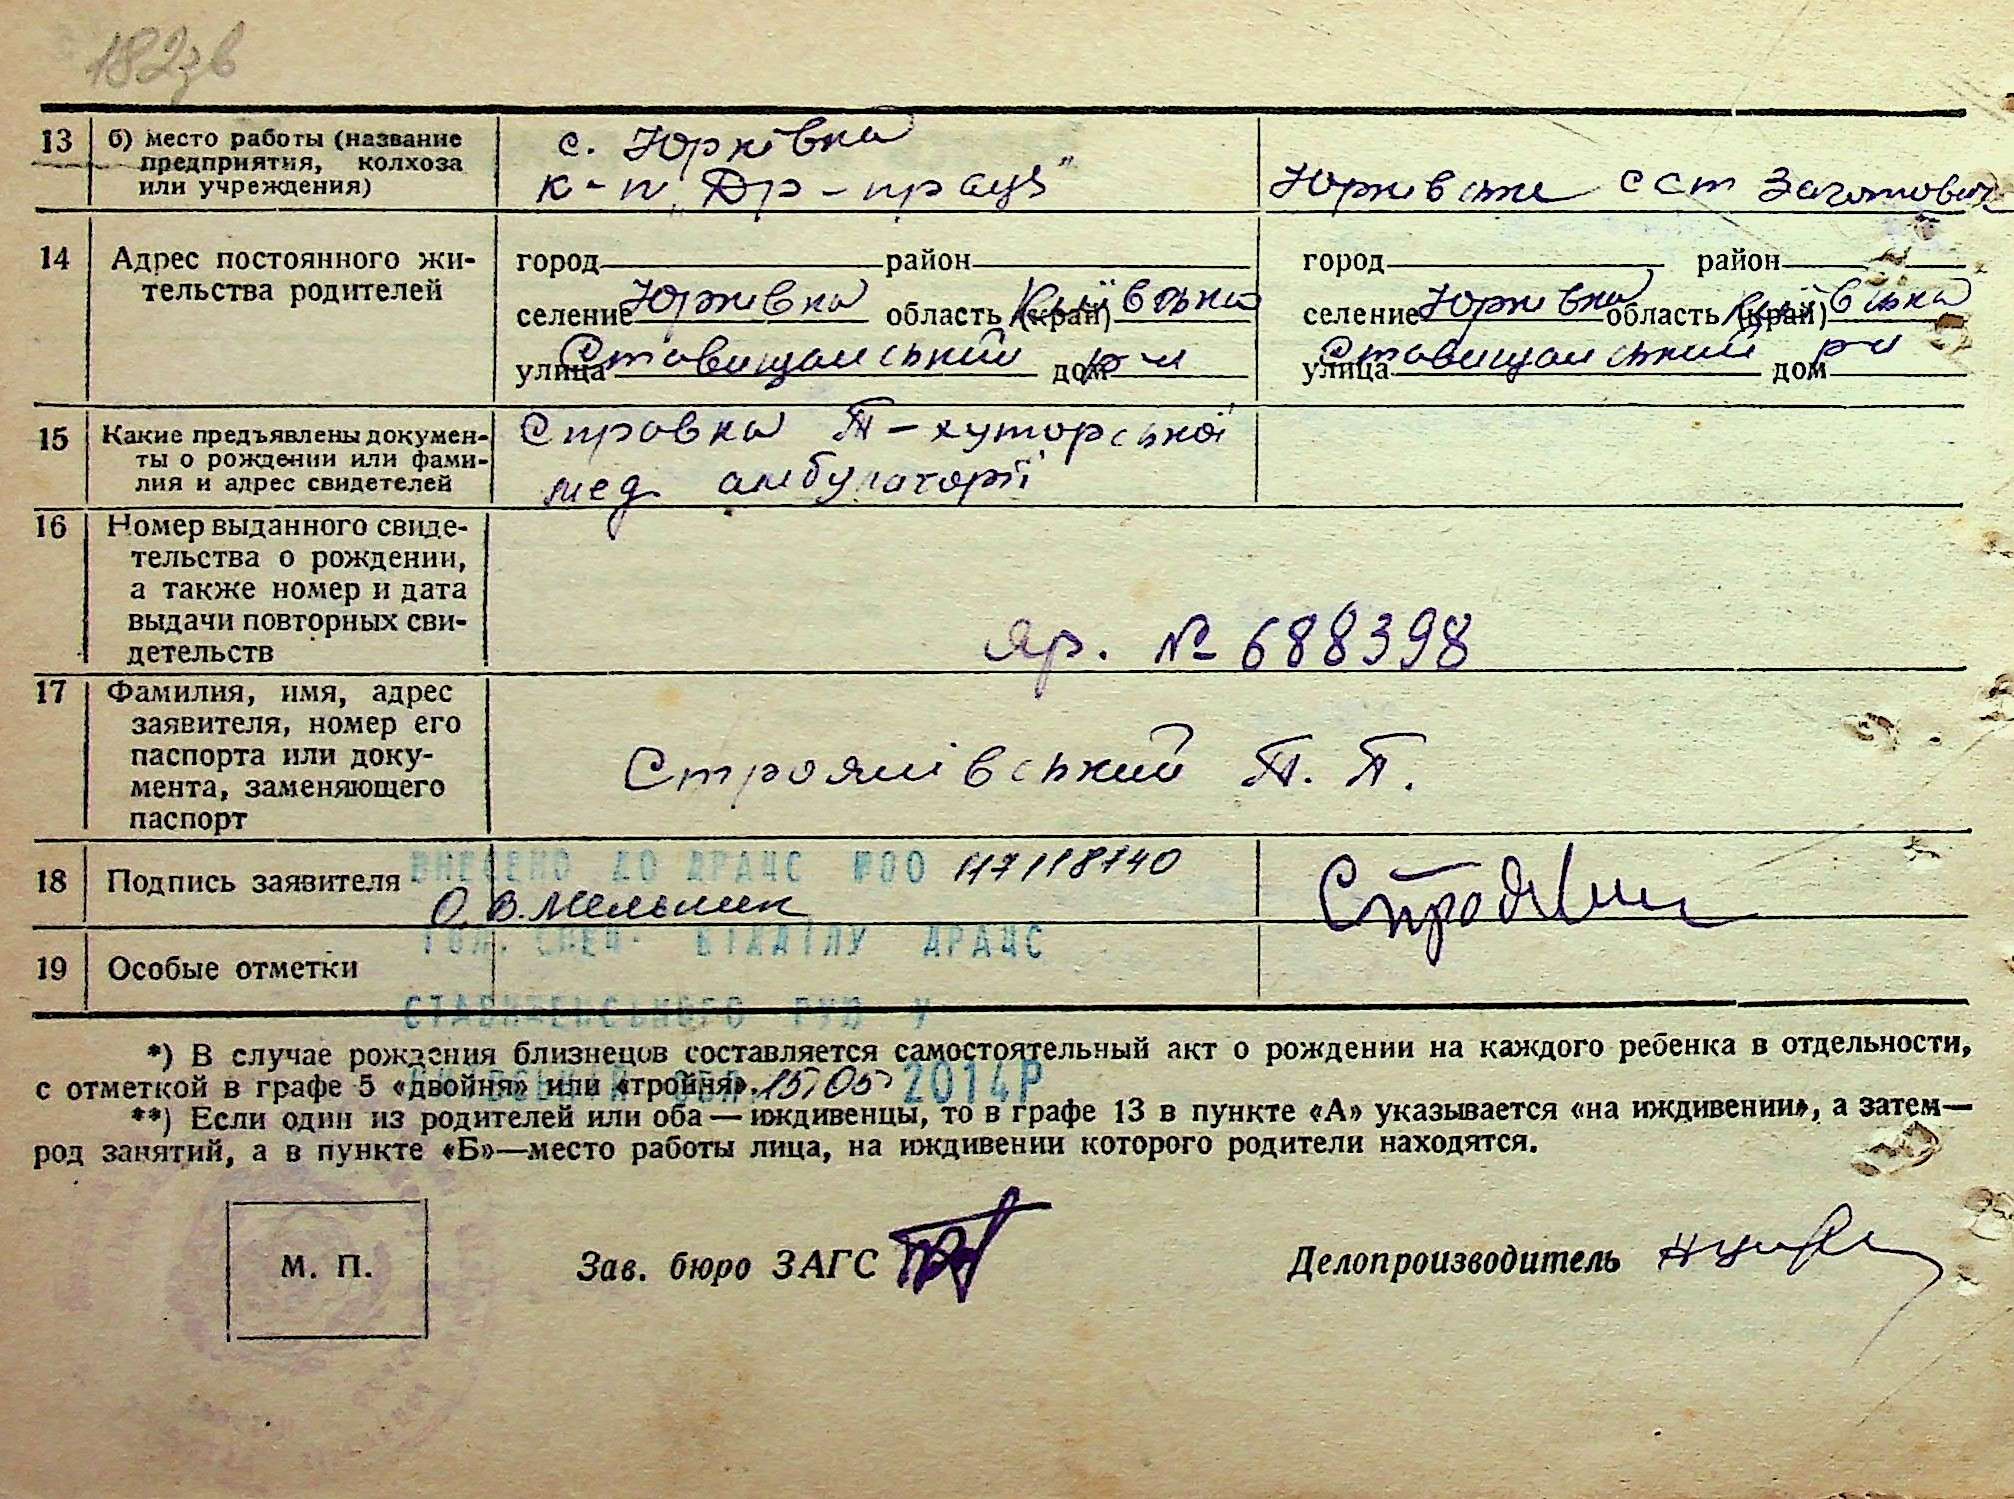 182зв
13 б) место работы (название
предприятия, колхоза
или учреждения)
с. Юрківка
к-п „Др-праці"
Юрківське сст
14 Адрес постоянного жи-
тельства родителей
город район
селение Юрківка область (край) Київська
улица Ставищанський дом р-н
город район
селение Юрківка область (край) Київська
улица Ставищанський дом р-н
15 Какие предъявлены докумен-
ты о рождении или фами-
лия и адрес свидетелей
Справка Т-хуторської
мед амбулаторії
16 Номер выданного свиде-
тельства о рождении,
а также номер и дата
выдачи повторных сви-
детельств
яр. № 688398
17 Фамилия, имя, адрес
заявителя, номер его
паспорта или доку-
мента, заменяющего
паспорт
Строянівський П. П.
18 Подпись заявителя
ВНЕСЕНО ДО ДРАЦС №00 117118740
О.В. Мельник
ГОЛ. СПЕЦ. ВІДДІЛУ ДРАЦС
19 Особые отметки
СТАВИЩЕНСЬКОГО РУЮ У
*) В случае рождения близнецов составляется самостоятельный акт о рождении на каждого ребенка в отдельности,
с отметкой в графе 5 «двойня» или «тройня».
15/05 2014Р
**) Если один из родителей или оба — иждивенцы, то в графе 13 в пункте «А» указывается «на иждивении», а затем—
род занятий, а в пункте «Б»—место работы лица, на иждивении которого родители находятся.
М. П.
Зав. бюро ЗАГС
Делопроизводитель